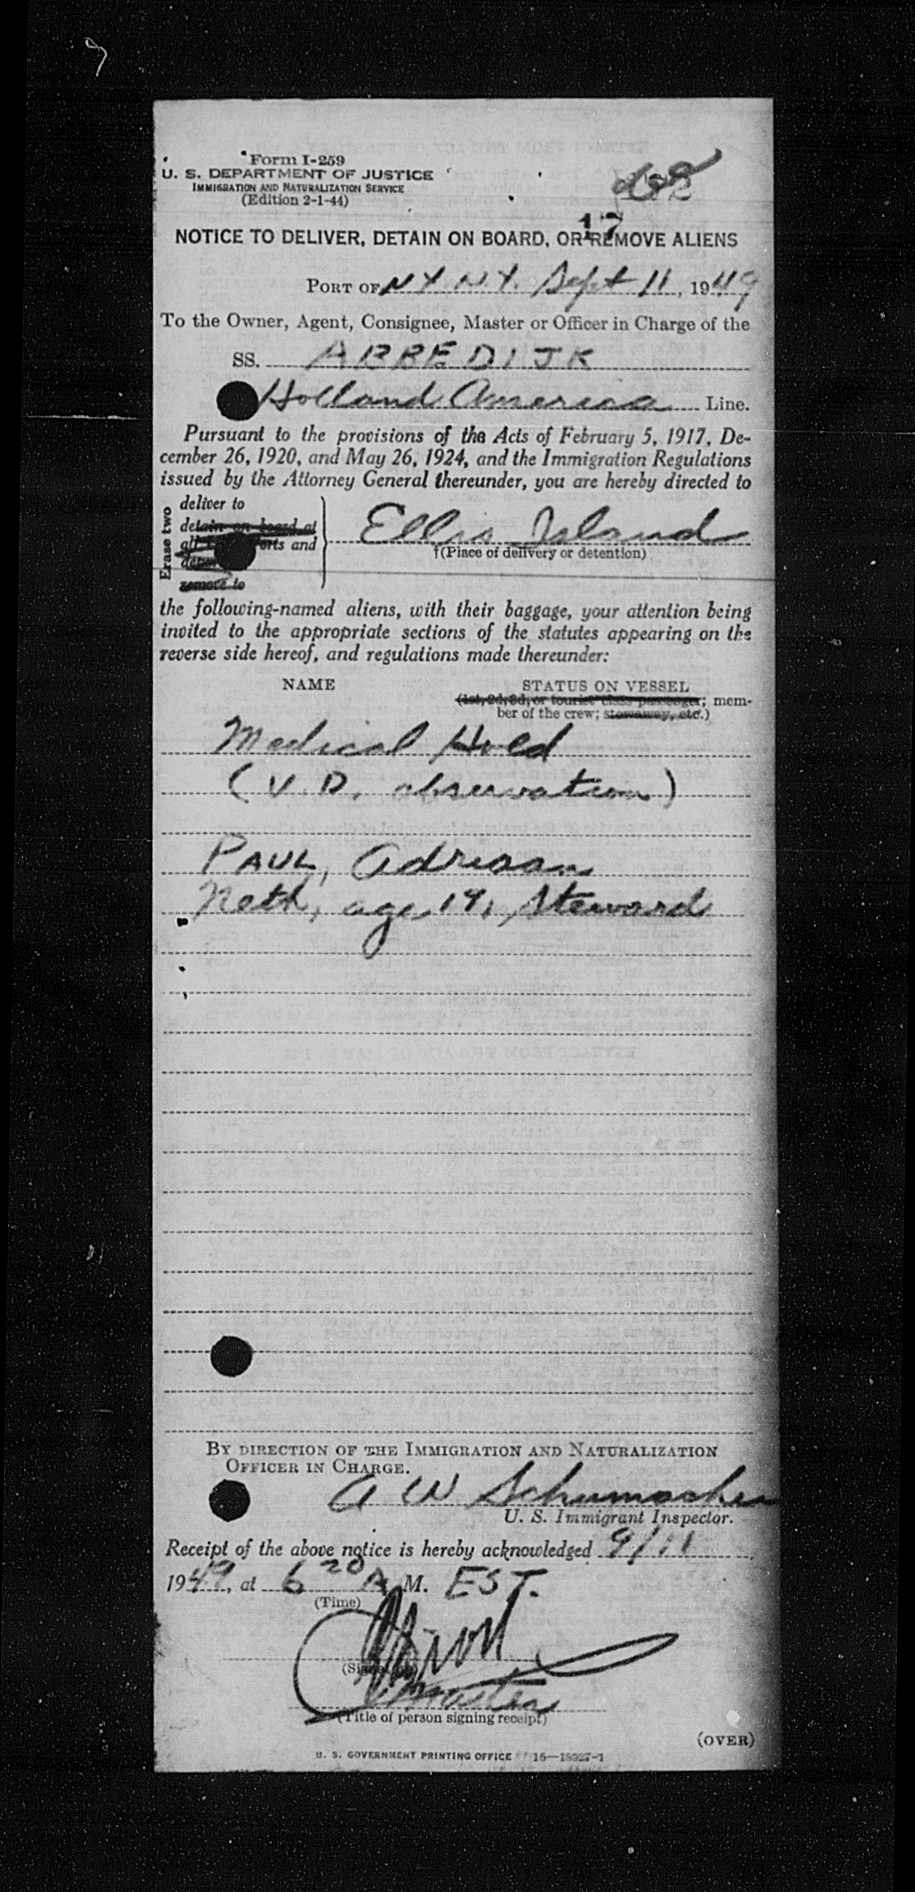 Form I-259
U. S. DEPARTMENT OF JUSTICE
IMMIGRATION AND NATURALIZATION SERVICE
(Edition 2-1-44)
17
NOTICE TO DELIVER, DETAIN ON BOARD, OR REMOVE ALIENS
PORT OF N Y. N.Y. Sept 11, 1949
To the Owner, Agent, Consignee, Master or Officer in Charge of the
SS. ABBEDIJK
Holland America Line.
Pursuant to the provisions of the Acts of February 5, 1917, De-
cember 26, 1920, and May 26, 1924, and the Immigration Regulations
issued by the Attorney General thereunder, you are hereby directed to
Erase two
deliver to
detain on board at
all ports and
remove to
Ellis Island
†(Place of delivery or detention)
the following-named aliens, with their baggage, your attention being
invited to the appropriate sections of the statutes appearing on the
reverse side hereof, and regulations made thereunder:
NAME STATUS ON VESSEL
(1st, 2d, 3d, or tourist class passenger; mem-
ber of the crew; stowaway, etc.)
Medical Hold
(V.D. observation)
PAUL, Adriaan
Neth, age 19, Steward
BY DIRECTION OF THE IMMIGRATION AND NATURALIZATION
OFFICER IN CHARGE.
A W Schumacher
U. S. Immigrant Inspector.
Receipt of the above notice is hereby acknowledged 9/11
1949, at 6 20 A M. EST.
(Time)
Master
(Title of person signing receipt)
(OVER)
U. S. GOVERNMENT PRINTING OFFICE 16—18927-1